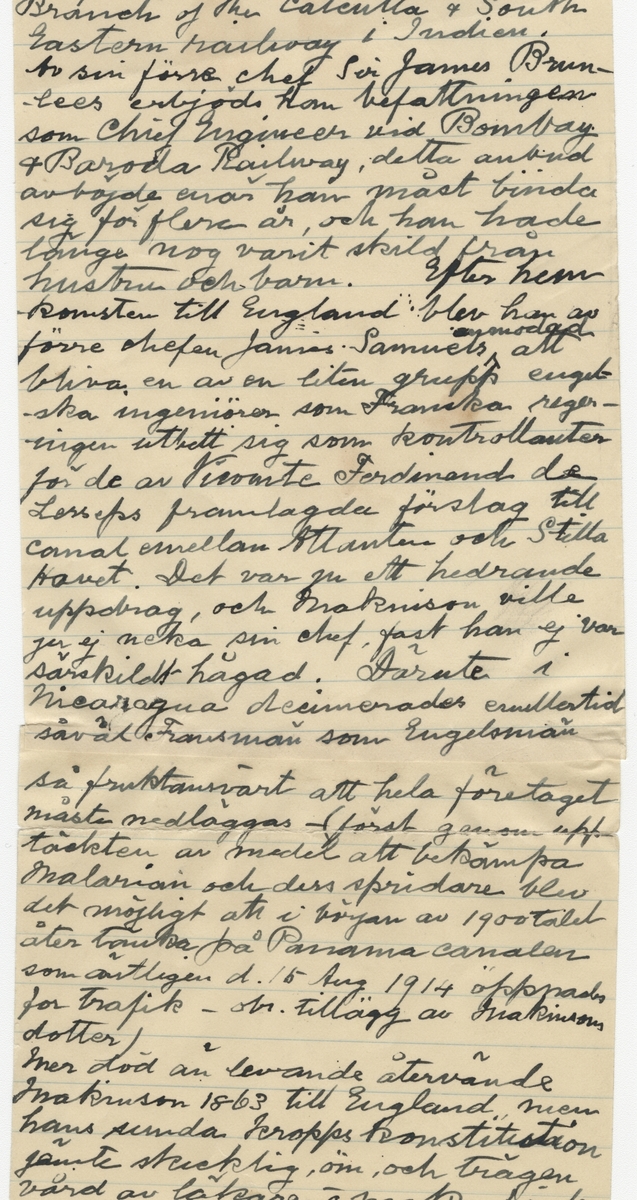 Branch of the Calcutta & South
Eastern railway i Indien.
Av sin förre chef Sir James Brun-
-lees erbjöds han befattningen
som Chief Engineer vid Bombay
& Baroda Railway, detta anbud
avböjde enär han måst binda
sig för flera år, och han hade
länge nog varit skild från
hustru och barn. Efter hem
komsten till England blev han av
anmodad
förre chefen James Samuels, att
bliva en av en liten grupp engel-
-ska ingeniörer som Franska reger-
-ingen utbett sig som kontrollanter
för de av Vicomte Ferdinand de
Lesseps framlagda förslag till
canal emellan Atlanten och Stilla
Havet. Det var ju ett hedrande
uppdrag, och Makinson ville
ju ej neka sin chef, fast han ej var
särskildt hågad. Därute i
Nicaragua decimerades emellertid
såväl Fransmän som Engelsmän
så fruktansvärt att hela företaget
måste nedläggas – (först genom upp-
täckten av medel att bekämpa
Malarian och dess spridare blev
det möjligt att i början av 1900talet
åter tänka på Panama canalen
som äntligen d. 15 Aug 1914 öppnades
for trafik – obs. tillägg av Makinsons
dotter)
Mer död än levande återvände
Makinson 1863 till England, men
hans sunda kroppskonstitution
jemte skicklig, öm, och trägen
vård av läkare